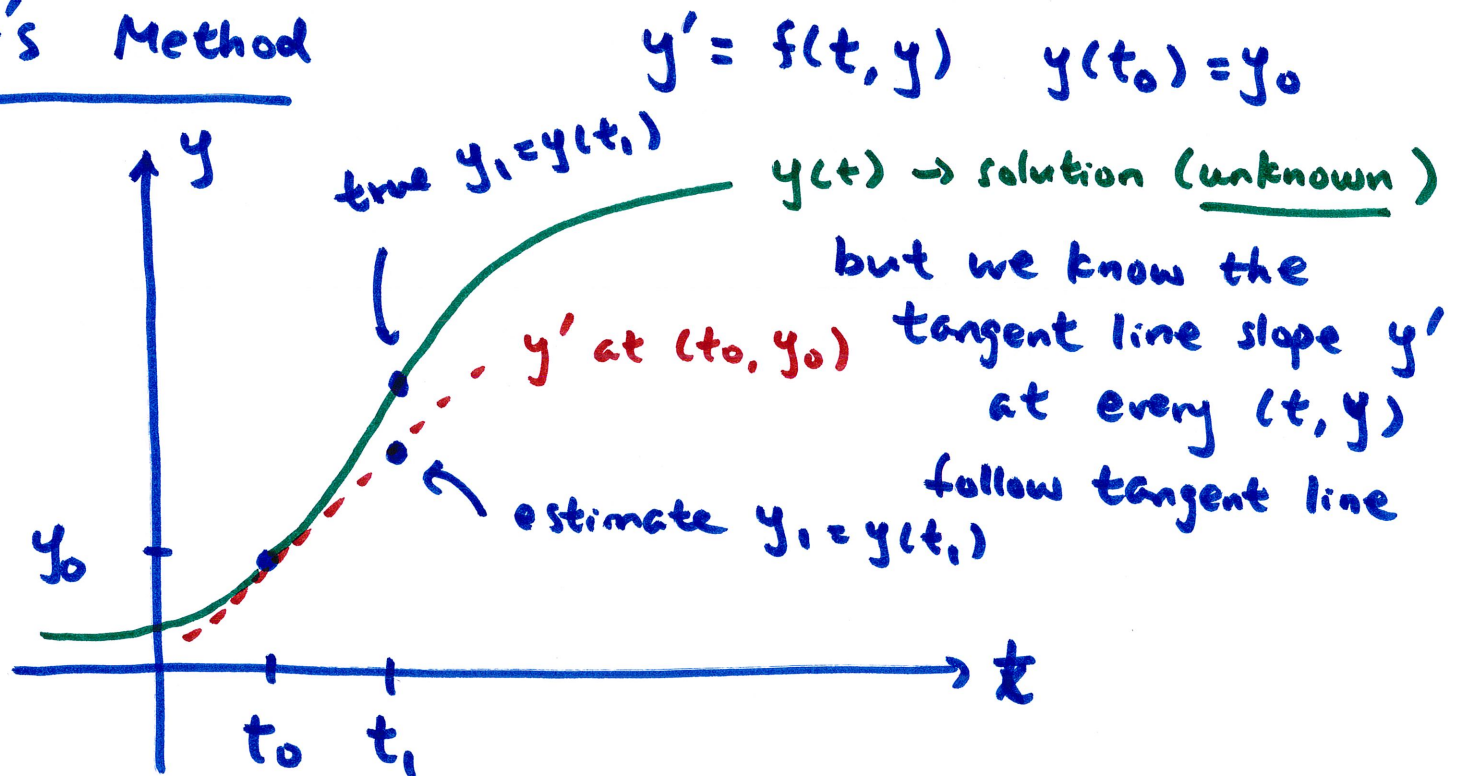 's Method
y' = f(t, y) y(t₀) = y₀
y
true y₁ = y(t₁)
y(t) → solution (unknown)
but we know the
tangent line slope y'
at every (t, y)
follow tangent line
y' at (t₀, y₀)
estimate y₁ = y(t₁)
y₀
t
t₀ t₁